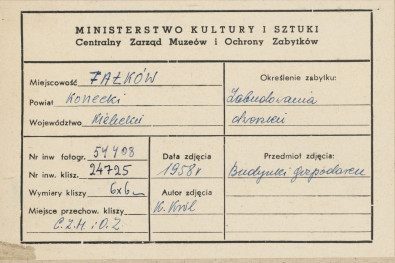 MINISTERSTWO KULTURY I SZTUKI
Centralny Zarząd Muzeów i Ochrony Zabytków
Miejscowość FAŁKÓW
Powiat Konecki
Województwo Kielecki
Określenie zabytku:
Zabudowania
dworskie
Nr inw fotogr. 54408
Nr inw. klisz. 24725
Wymiary kliszy 6x6
Miejsce przechow. kliszy
C.Z.M. i O.Z
Data zdjęcia
1958r
Autor zdjęcia
K. Król
Przedmiot zdjęcia:
Budynki gospodarcze